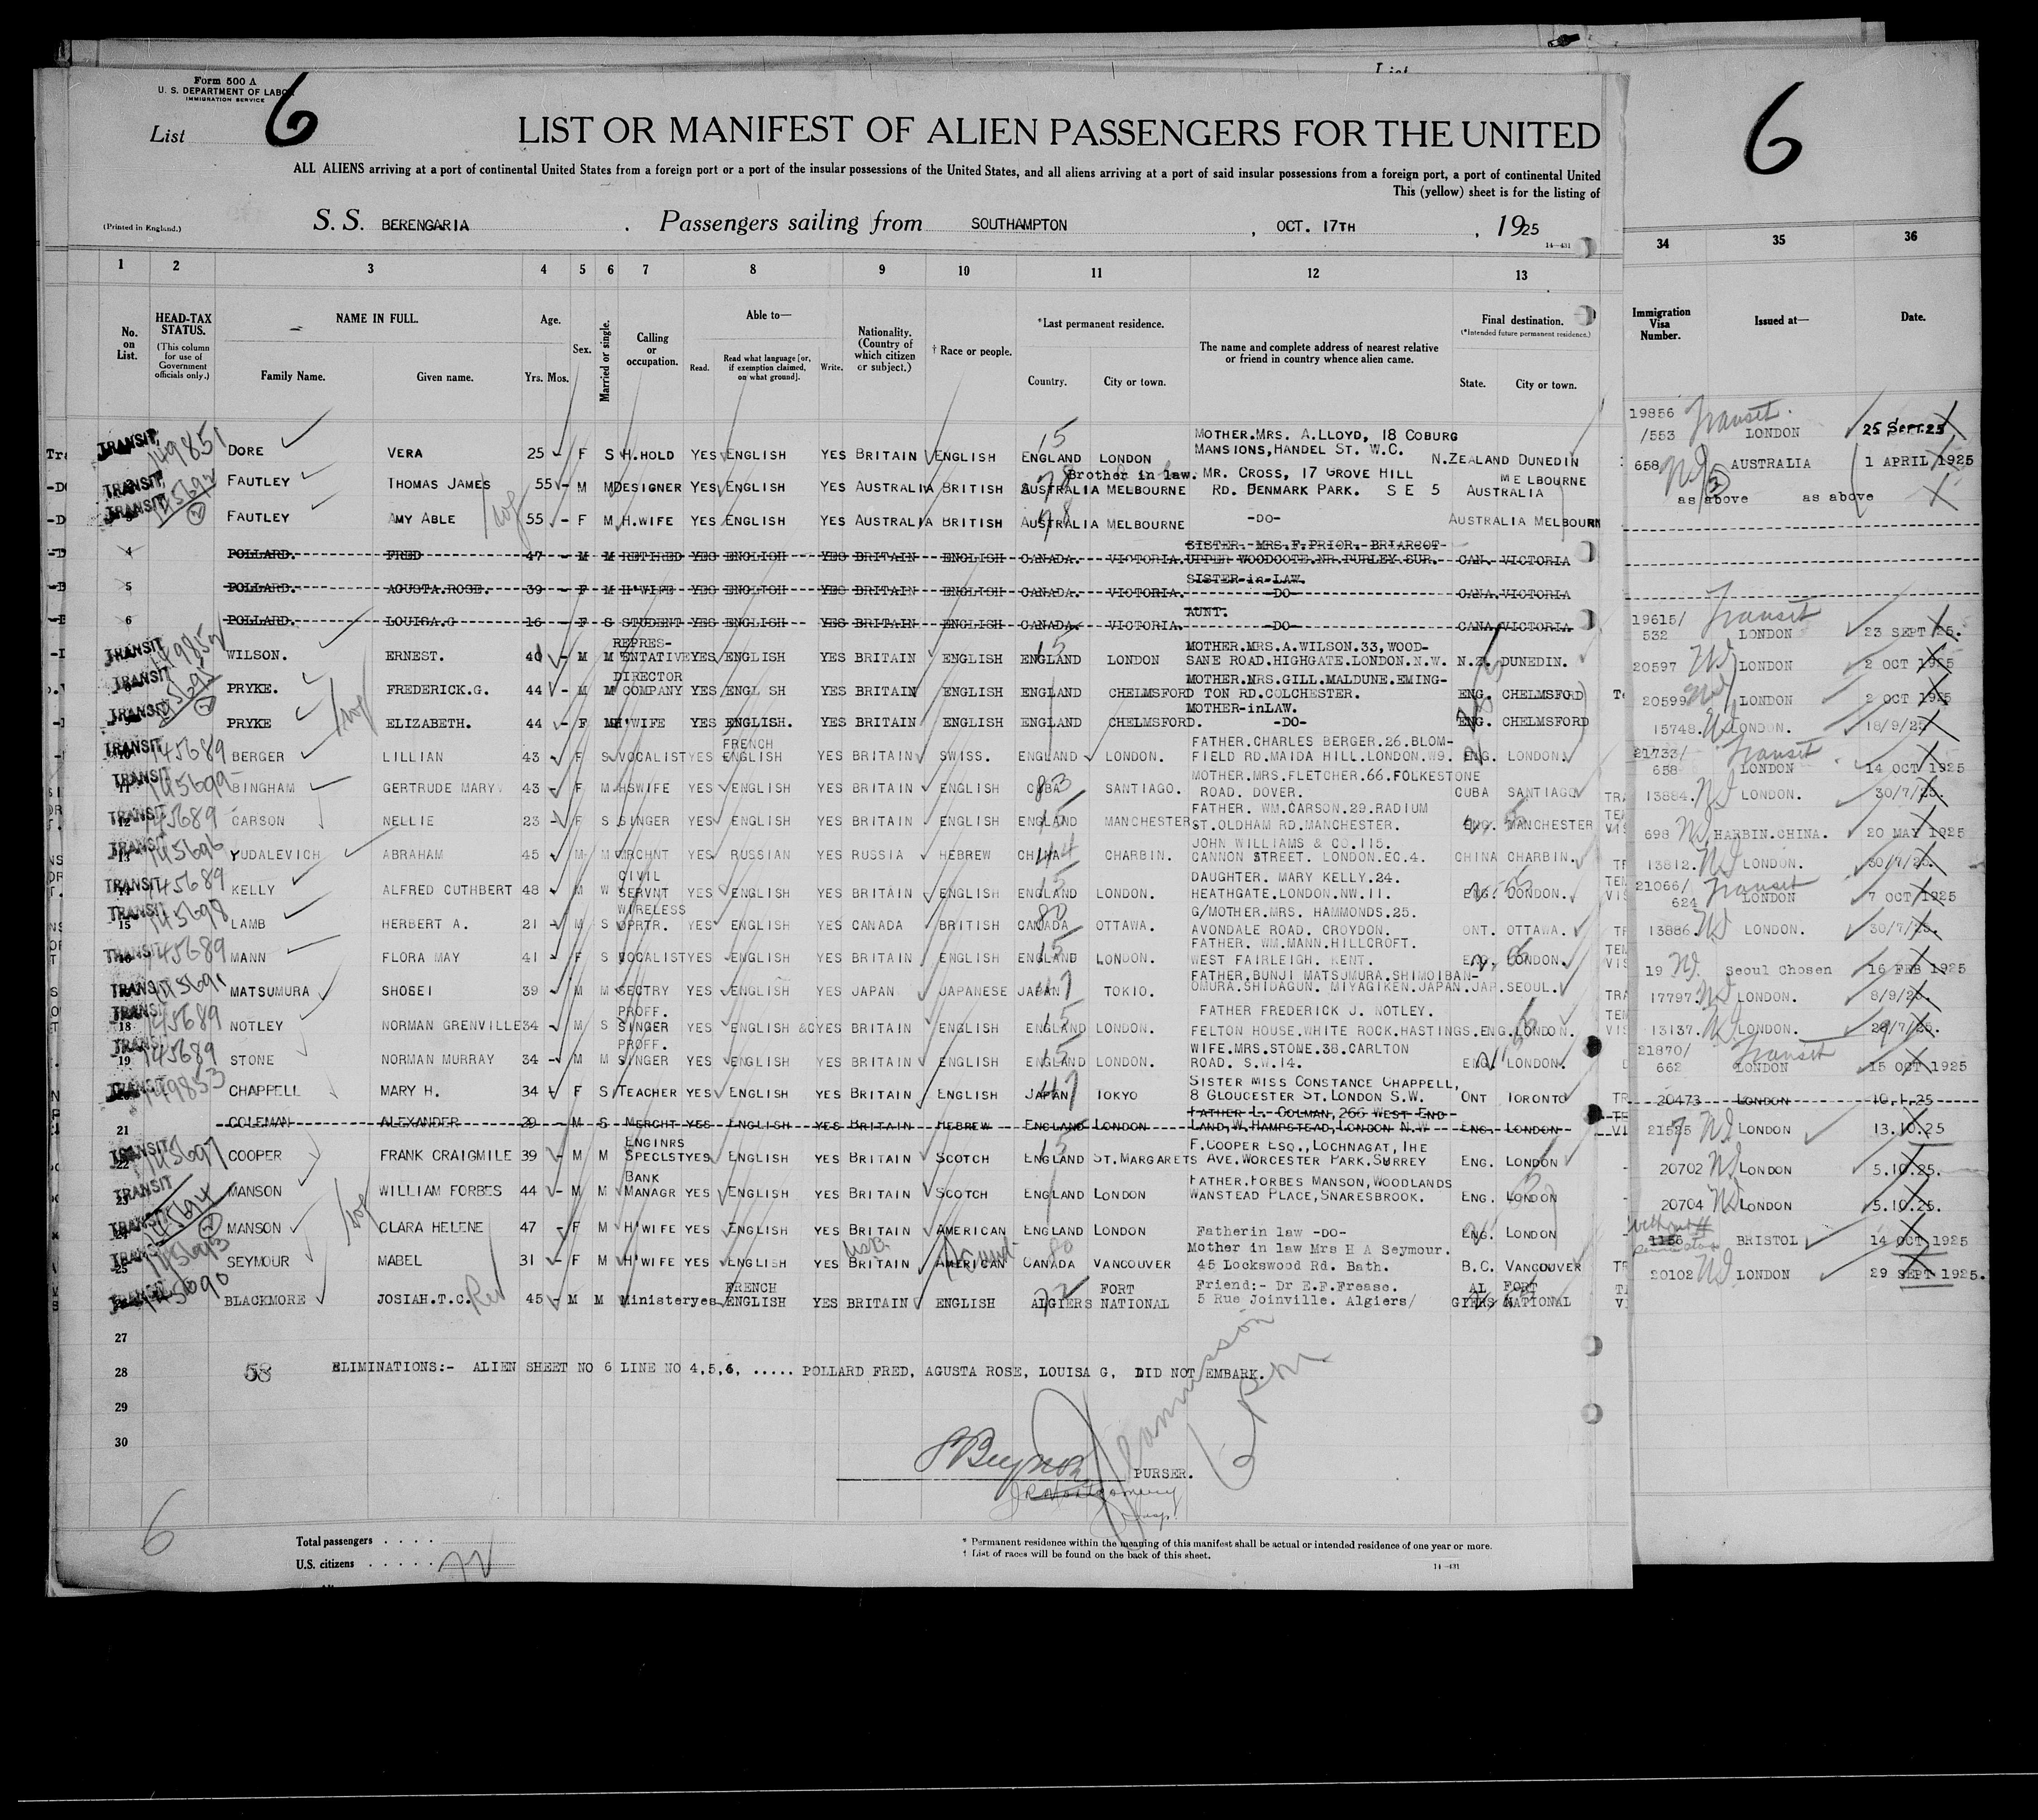 Form 500 A
U. S. DEPARTMENT OF LABOR
IMMIGRATION SERVICE
List 6
6
LIST OR MANIFEST OF ALIEN PASSENGERS FOR THE UNITED
ALL ALIENS arriving at a port of continental United States from a foreign port or a port of the insular possessions of the United States, and all aliens arriving at a port of said insular possessions from a foreign port, a port of continental United
This (yellow) sheet is for the listing of
(Printed in England.)
S. S. BERENGARIA . Passengers sailing from SOUTHAMPTON , OCT. 17TH , 1925
14—431
1 2 3 4 5 6 7 8 9 10 11 12 13 34 35 36
No. on List.
HEAD-TAX STATUS.
(This column for use of Government officials only.)
NAME IN FULL.
Family Name. Given name.
Age.
Yrs. Mos.
Sex.
Married or single.
Calling or occupation.
Able to—
Read. Read what language [or, if exemption claimed, on what ground]. Write.
Nationality. (Country of which citizen or subject.)
† Race or people.
*Last permanent residence.
Country. City or town.
The name and complete address of nearest relative or friend in country whence alien came.
Final destination.
(*Intended future permanent residence.)
State. City or town.
Immigration Visa Number.
Issued at—
Date.
TRANSIT 149851 DORE VERA 25 - F S H.HOLD YES ENGLISH YES BRITAIN ENGLISH ENGLAND LONDON MOTHER.MRS. A.LLOYD, 18 COBURG MANSIONS,HANDEL ST. W.C. N.ZEALAND DUNEDIN 19856 /553 Transit LONDON 25 SEPT.25
TRANSIT FAUTLEY THOMAS JAMES 55 - M M DESIGNER YES ENGLISH YES AUSTRALIA BRITISH AUSTRALIA MELBOURNE Brother in law. MR. CROSS, 17 GROVE HILL RD. DENMARK PARK. S E 5 AUSTRALIA MELBOURNE 658 AUSTRALIA 1 APRIL 1925
TRANSIT FAUTLEY AMY ABLE 55 - F M H.WIFE YES ENGLISH YES AUSTRALIA BRITISH AUSTRALIA MELBOURNE -DO- AUSTRALIA MELBOURN as above as above
4 POLLARD. FRED 47 - M M RETIRED YES ENGLISH YES BRITAIN ENGLISH CANADA. VICTORIA. SISTER.-MRS.F.PRIOR.-BRIARCOT- UPPER WOODCOTE.NR.PURLEY.SUR. CAN. VICTORIA
5 POLLARD. AGUSTA.ROSE. 39 - F M H'WIFE YES ENGLISH YES BRITAIN ENGLISH CANADA. VICTORIA. SISTER-in-LAW. -DO- CANA.VICTORIA
6 POLLARD. LOUISA.G 16 - F S STUDENT YES ENGLISH YES BRITAIN ENGLISH CANADA. VICTORIA. AUNT. -DO- CANA VICTORIA
TRANSIT WILSON. ERNEST. 40 - M M REPRES- ENTATIVE YES ENGLISH YES BRITAIN ENGLISH ENGLAND LONDON MOTHER.MRS.A.WILSON.33,WOOD- SANE ROAD.HIGHGATE.LONDON.N.W. N.Z. DUNEDIN. 19615/ 532 Transit LONDON 23 SEPT 25.
TRANSIT PRYKE. FREDERICK.G. 44 - M M DIRECTOR COMPANY YES ENGL SH YES BRITAIN ENGLISH ENGLAND CHELMSFORD MOTHER.MRS.GILL.MALDUNE.EMING- TON RD.COLCHESTER. ENG. CHELMSFORD 20597 LONDON 2 OCT 1925
TRANSIT PRYKE ELIZABETH. 44 - F M H'WIFE YES ENGLISH. YES BRITAIN ENGLISH ENGLAND CHELMSFORD. MOTHER-inLAW. -DO- ENG. CHELMSFORD 20599 LONDON 2 OCT 1925
TRANSIT 145689 BERGER LILLIAN 43 F S VOCALIST YES FRENCH ENGLISH YES BRITAIN SWISS. ENGLAND LONDON. FATHER.CHARLES BERGER.26.BLOM- FIELD RD.MAIDA HILL.LONDON.W9. ENG. LONDON. 15748. LONDON. 18/9/25
TRANSIT 145699 BINGHAM GERTRUDE MARY. 43 - F M HSWIFE YES ENGLISH YES BRITAIN ENGLISH CUBA SANTIAGO. MOTHER.MRS.FLETCHER.66.FOLKESTONE ROAD. DOVER. CUBA SANTIAGO 21733/ 658 Transit LONDON 14 OCT 1925
TRANSIT 145689 CARSON NELLIE 23 - F S SINGER YES ENGLISH YES BRITAIN ENGLISH ENGLAND MANCHESTER FATHER. WM.CARSON.29.RADIUM ST.OLDHAM RD.MANCHESTER. ENG. MANCHESTER 13884. LONDON. 30/7/25.
TRANSIT 145696 YUDALEVICH ABRAHAM 45 M M MRCHNT YES RUSSIAN YES RUSSIA HEBREW CHINA CHARBIN. JOHN WILLIAMS & CO.115. CANNON STREET. LONDON.EC.4. CHINA CHARBIN. 698 HARBIN.CHINA. 20 MAY 1925
TRANSIT 145689 KELLY ALFRED CUTHBERT 48 M W CIVIL SERVNT YES ENGLISH YES BRITAIN ENGLISH ENGLAND LONDON. DAUGHTER. MARY KELLY.24. HEATHGATE.LONDON.NW.11. ENG. LONDON. 13812. LONDON. 30/7/25.
TRANSIT 15 145698 LAMB HERBERT A. 21 - M S WIRELESS OPRTR. YES ENGLISH YES CANADA BRITISH CANADA OTTAWA. G/MOTHER.MRS. HAMMONDS.25. AVONDALE ROAD. CROYDON. ONT. OTTAWA. 21066/ 624 Transit LONDON 7 OCT 1925
TRANSIT 145689 MANN FLORA MAY 41 - F S VOCALIST YES ENGLISH YES BRITAIN ENGLISH ENGLAND LONDON. FATHER. WM.MANN.HILLCROFT. WEST FAIRLEIGH. KENT. ENG. LONDON. 13886. LONDON. 30/7/25.
TRANSIT 145691 MATSUMURA SHOSEI 39 M M SECTRY YES ENGLISH YES JAPAN JAPANESE JAPAN TOKIO. FATHER.BUNJI MATSUMURA.SHIMOIBAN- OMURA.SHIDAGUN. MIYAGIKEN.JAPAN. JAP.SEOUL. 19 Seoul Chosen 16 FEB 1925
TRANSIT 18 145689 NOTLEY NORMAN GRENVILLE 34 - M S PROFF. SINGER YES ENGLISH &C YES BRITAIN ENGLISH ENGLAND LONDON. FATHER FREDERICK J. NOTLEY. FELTON HOUSE.WHITE ROCK.HASTINGS. ENG.LONDON. 17797. LONDON. 8/9/25.
TRANSIT 19 145689 STONE NORMAN MURRAY 34 - M M PROFF. SINGER YES ENGLISH YES BRITAIN ENGLISH ENGLAND LONDON. WIFE.MRS.STONE.38.CARLTON ROAD. S.W.14. ENG. LONDON. 13137. LONDON. 7/25.
149853 CHAPPELL MARY H. 34 F S TEACHER YES ENGLISH YES BRITAIN ENGLISH JAPAN TOKYO SISTER MISS CONSTANCE CHAPPELL, 8 GLOUCESTER ST.LONDON S.W. ONT TORONTO 21870/ 662 Transit LONDON 15 OCT 1925
21 COLEMAN ALEXANDER 29 - M S MERCHT YES ENGLISH YES BRITAIN HEBREW ENGLAND LONDON FATHER L. COLMAN,266 WEST END LAND,W.HAMPSTEAD,LONDON N.W ENG. LONDON 20473 LONDON 10.1.25
TRANSIT 22 145697 COOPER FRANK CRAIGMILE 39 - M M ENGINRS SPECLST YES ENGLISH YES BRITAIN SCOTCH ENGLAND ST.MARGARETS F.COOPER ESQ., LOCHNAGAT, THE AVE.WORCESTER PARK.SURREY ENG. LONDON 21525 LONDON 13.10.25
TRANSIT MANSON WILLIAM FORBES 44 - M M BANK MANAGR YES ENGLISH YES BRITAIN SCOTCH ENGLAND LONDON FATHER.FORBES MANSON,WOODLANDS WANSTEAD PLACE,SNARESBROOK. ENG. LONDON 20702 LONDON 5.10.25.
145694 MANSON CLARA HELENE 47 - F M H'WIFE YES ENGLISH YES BRITAIN AMERICAN ENGLAND LONDON Fatherin law -DO- ENG. LONDON 20704 LONDON 5.10.25.
25 SEYMOUR MABEL 31 - F M H'WIFE YES ENGLISH YES BRITAIN AMERICAN CANADA VANCOUVER Mother in law Mrs H A Seymour. 45 Lockswood Rd. Bath. B.C. VANCOUVER 1156 BRISTOL 14 OCT 1925
145690 BLACKMORE JOSIAH.T.C. 45 M M Minister yes FRENCH ENGLISH YES BRITAIN ENGLISH ALGIERS FORT NATIONAL Friend:- Dr E.F.Frease. 5 Rue Joinville. Algiers/ AL GIERS FORT NATIONAL 20102 LONDON 29 SEPT 1925.
27
28 58 ELIMINATIONS:- ALIEN SHEET NO 6 LINE NO 4,5,6, ..... POLLARD FRED, AGUSTA ROSE, LOUISA G, DID NOT EMBARK.
29
30
PURSER.
6
Total passengers . . . .
U.S. citizens . . . . .
* Permanent residence within the meaning of this manifest shall be actual or intended residence of one year or more.
† List of races will be found on the back of this sheet.
14—431